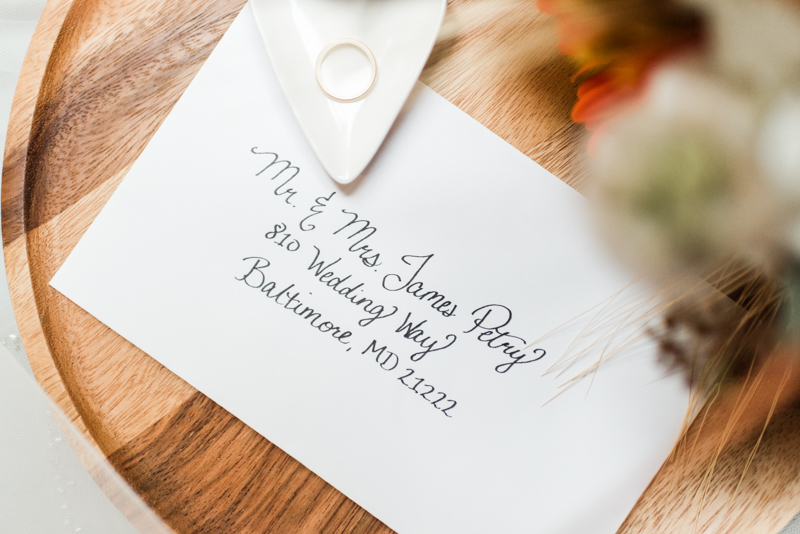 Mr. & Mrs. James Petry
810 Wedding Way
Baltimore, MD 21222